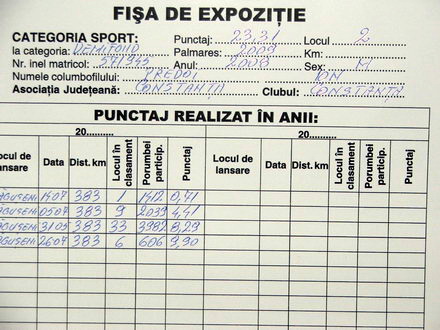 FIȘA DE EXPOZIȚIE
CATEGORIA SPORT: Punctaj: 23,31 Locul 2
la categoria: DEMIFOND Palmares: 2009 Km:
Nr. inel matricol: 571935 Anul: 2008 Sex: M
Numele columbofilului: PREDOI ION
Asociația Județeană: CONSTANȚA Clubul: CONSTANȚA
PUNCTAJ REALIZAT ÎN ANII:
20.......... 20..........
Locul de lansare Data Dist. km Locul în clasament Porumbei particip. Punctaj Locul de lansare Data Dist. km Locul în clasament Porumbei particip. Punctaj
383 1 1412 0,71
0507 383 9 2039 4,41
3105 383 33 3982 8,29
2607 383 6 606 9,90